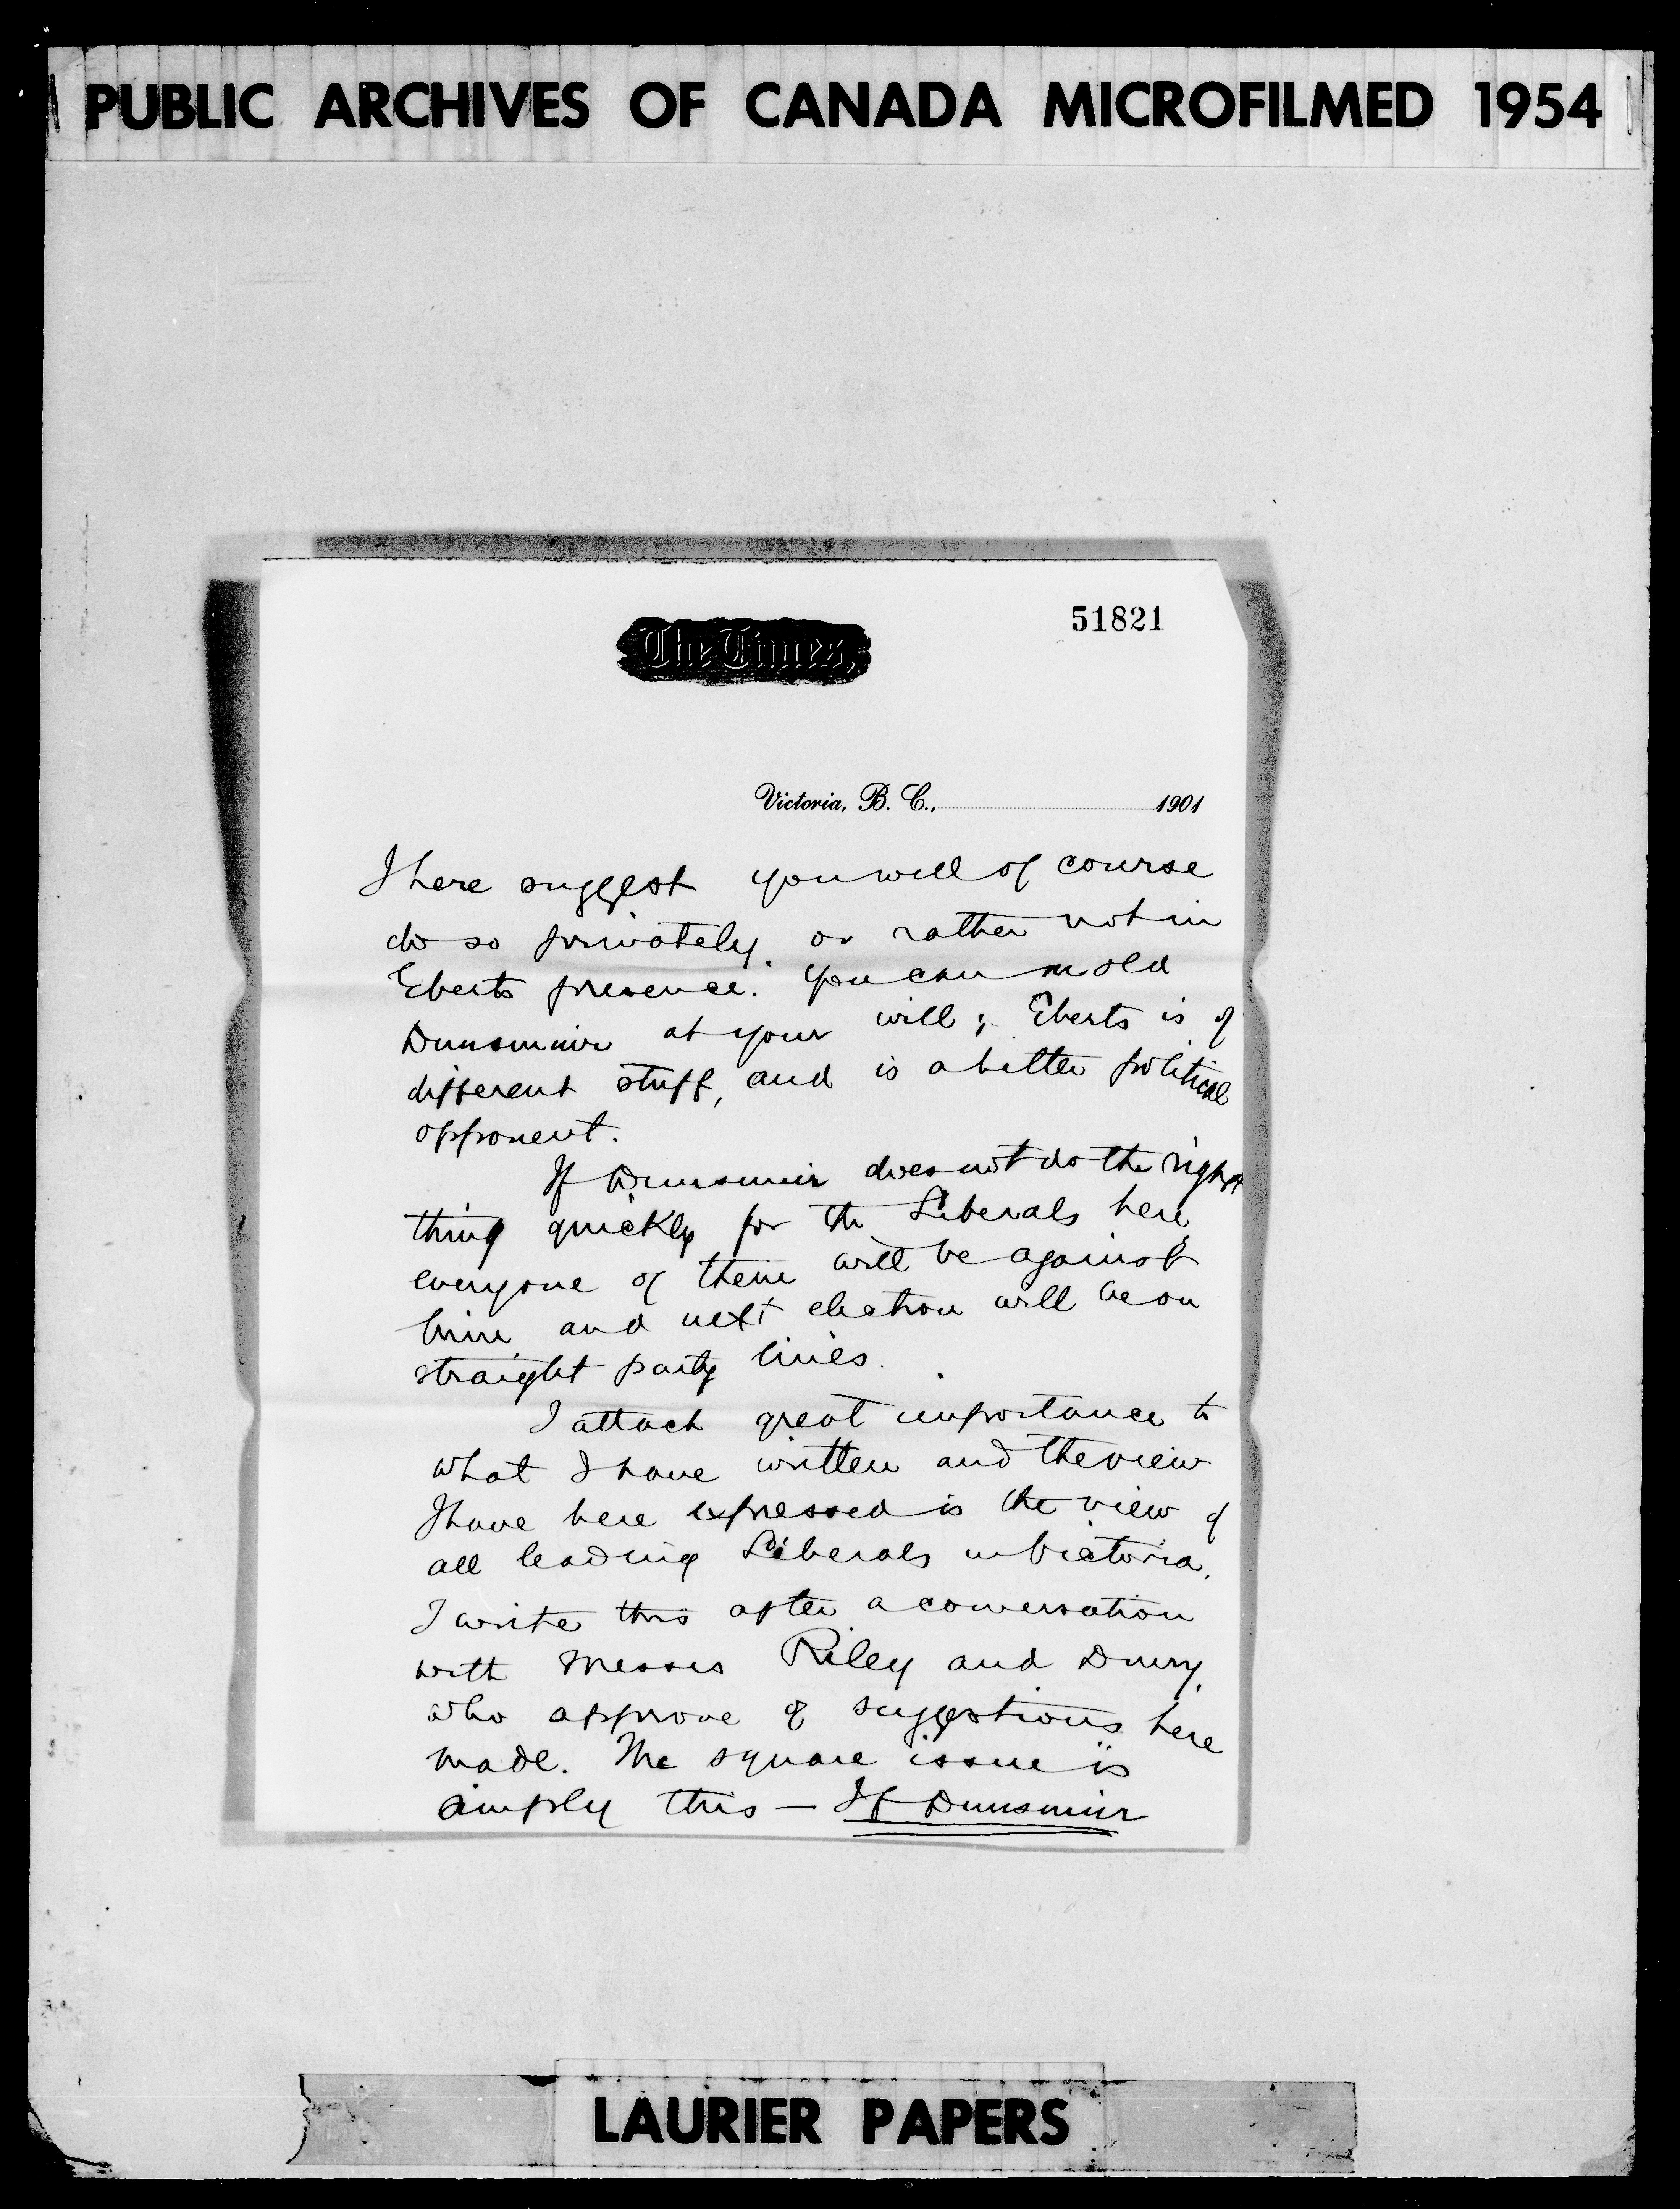 PUBLIC ARCHIVES OF CANADA MICROFILMED 1954
51821
The Times,
Victoria, B. C., 1901
I here suggest you will of course
do so privately, or rather not in
Eberts presence. You can mold
Dunsmuir at your will; Eberts is of
different stuff, and is a bitter political
opponent.
If Dunsmuir does not do the right
thing quickly for the Liberals here,
everyone of them will be against
him, and next election will be on
straight party lines.
I attach great importance to
what I have written and the view
I have here expressed is the view of
all leading Liberals in Victoria.
I write this after a conversation
with Messrs Riley and Drury,
who approve of suggestions here
made. The square issue is
simply this — If Dunsmuir
LAURIER PAPERS